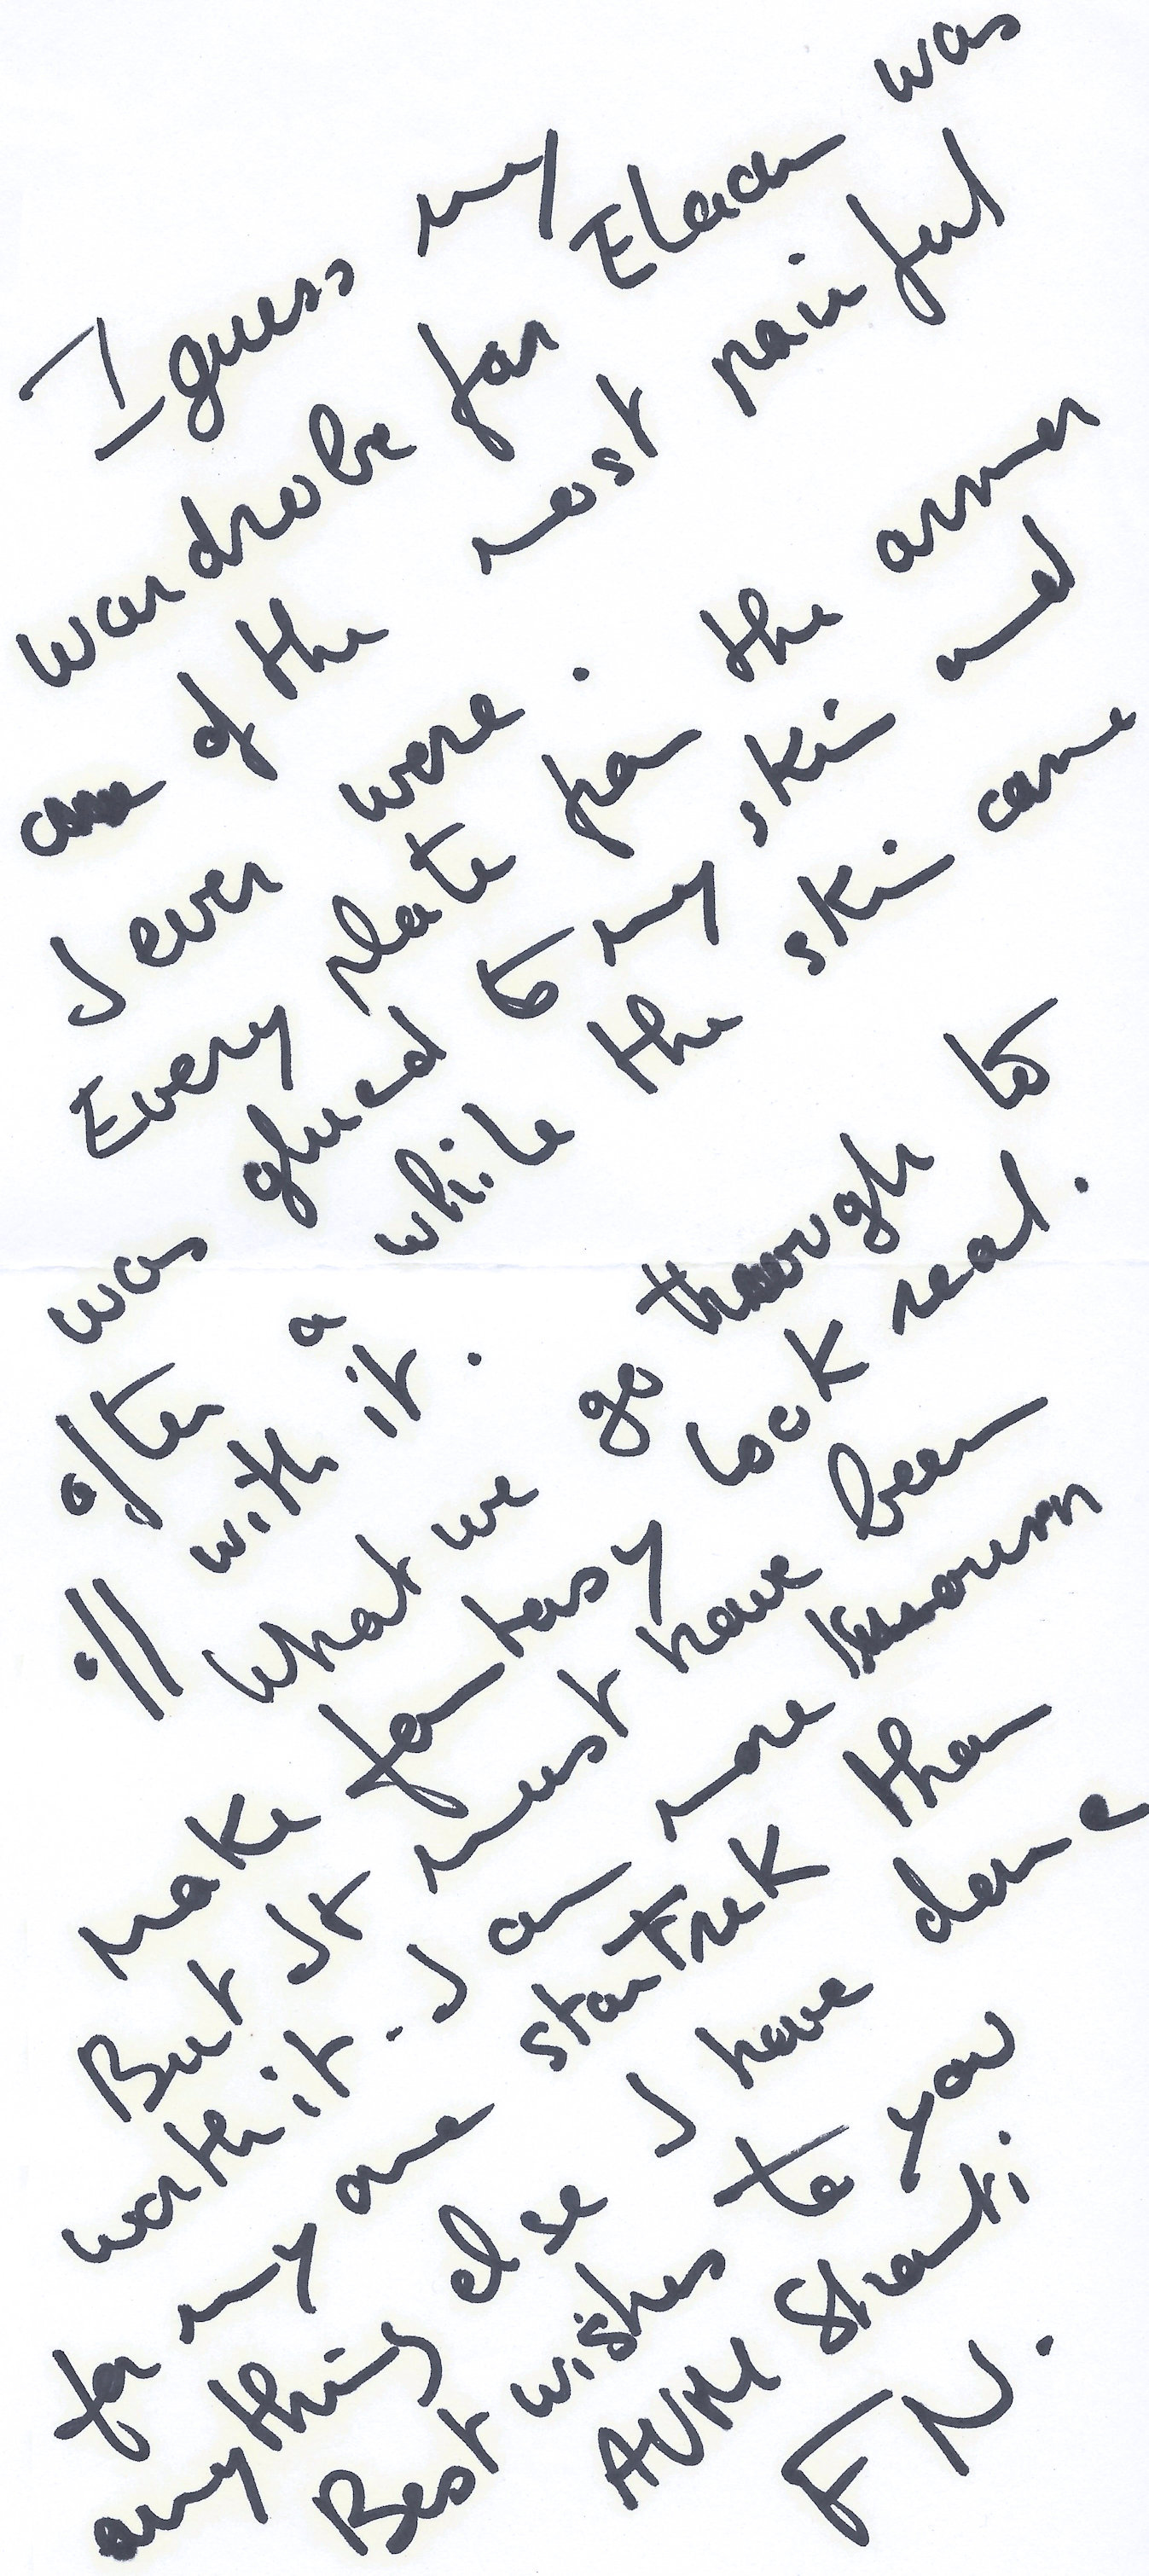 I guess my
wardrobe for Elaan was
one of the most painful
I ever wore.
Every plate for the armor
was glued to my skin and
after a while the skin came
off with it.
What we go through to
make fantasy look real.
But It must have been
worth it. I am more known
for my one star Trek than
anything else I have done
Best wishes to you
AUM Shanti
F N.